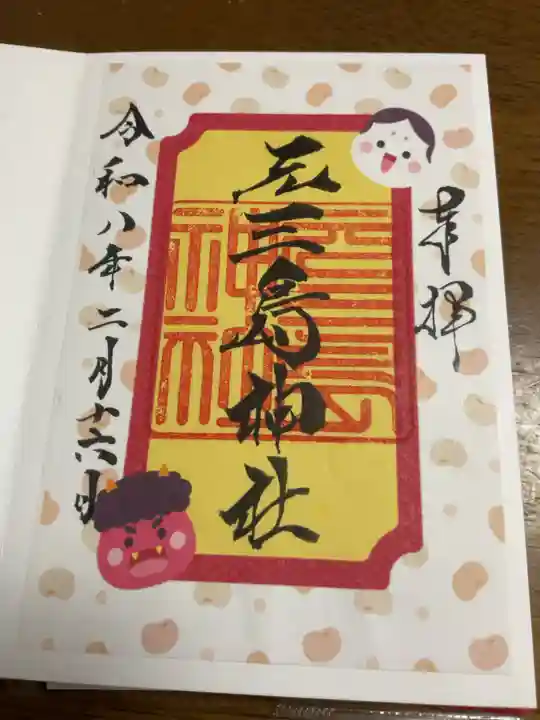 奉拝
元三島神社
令和八年二月十六日